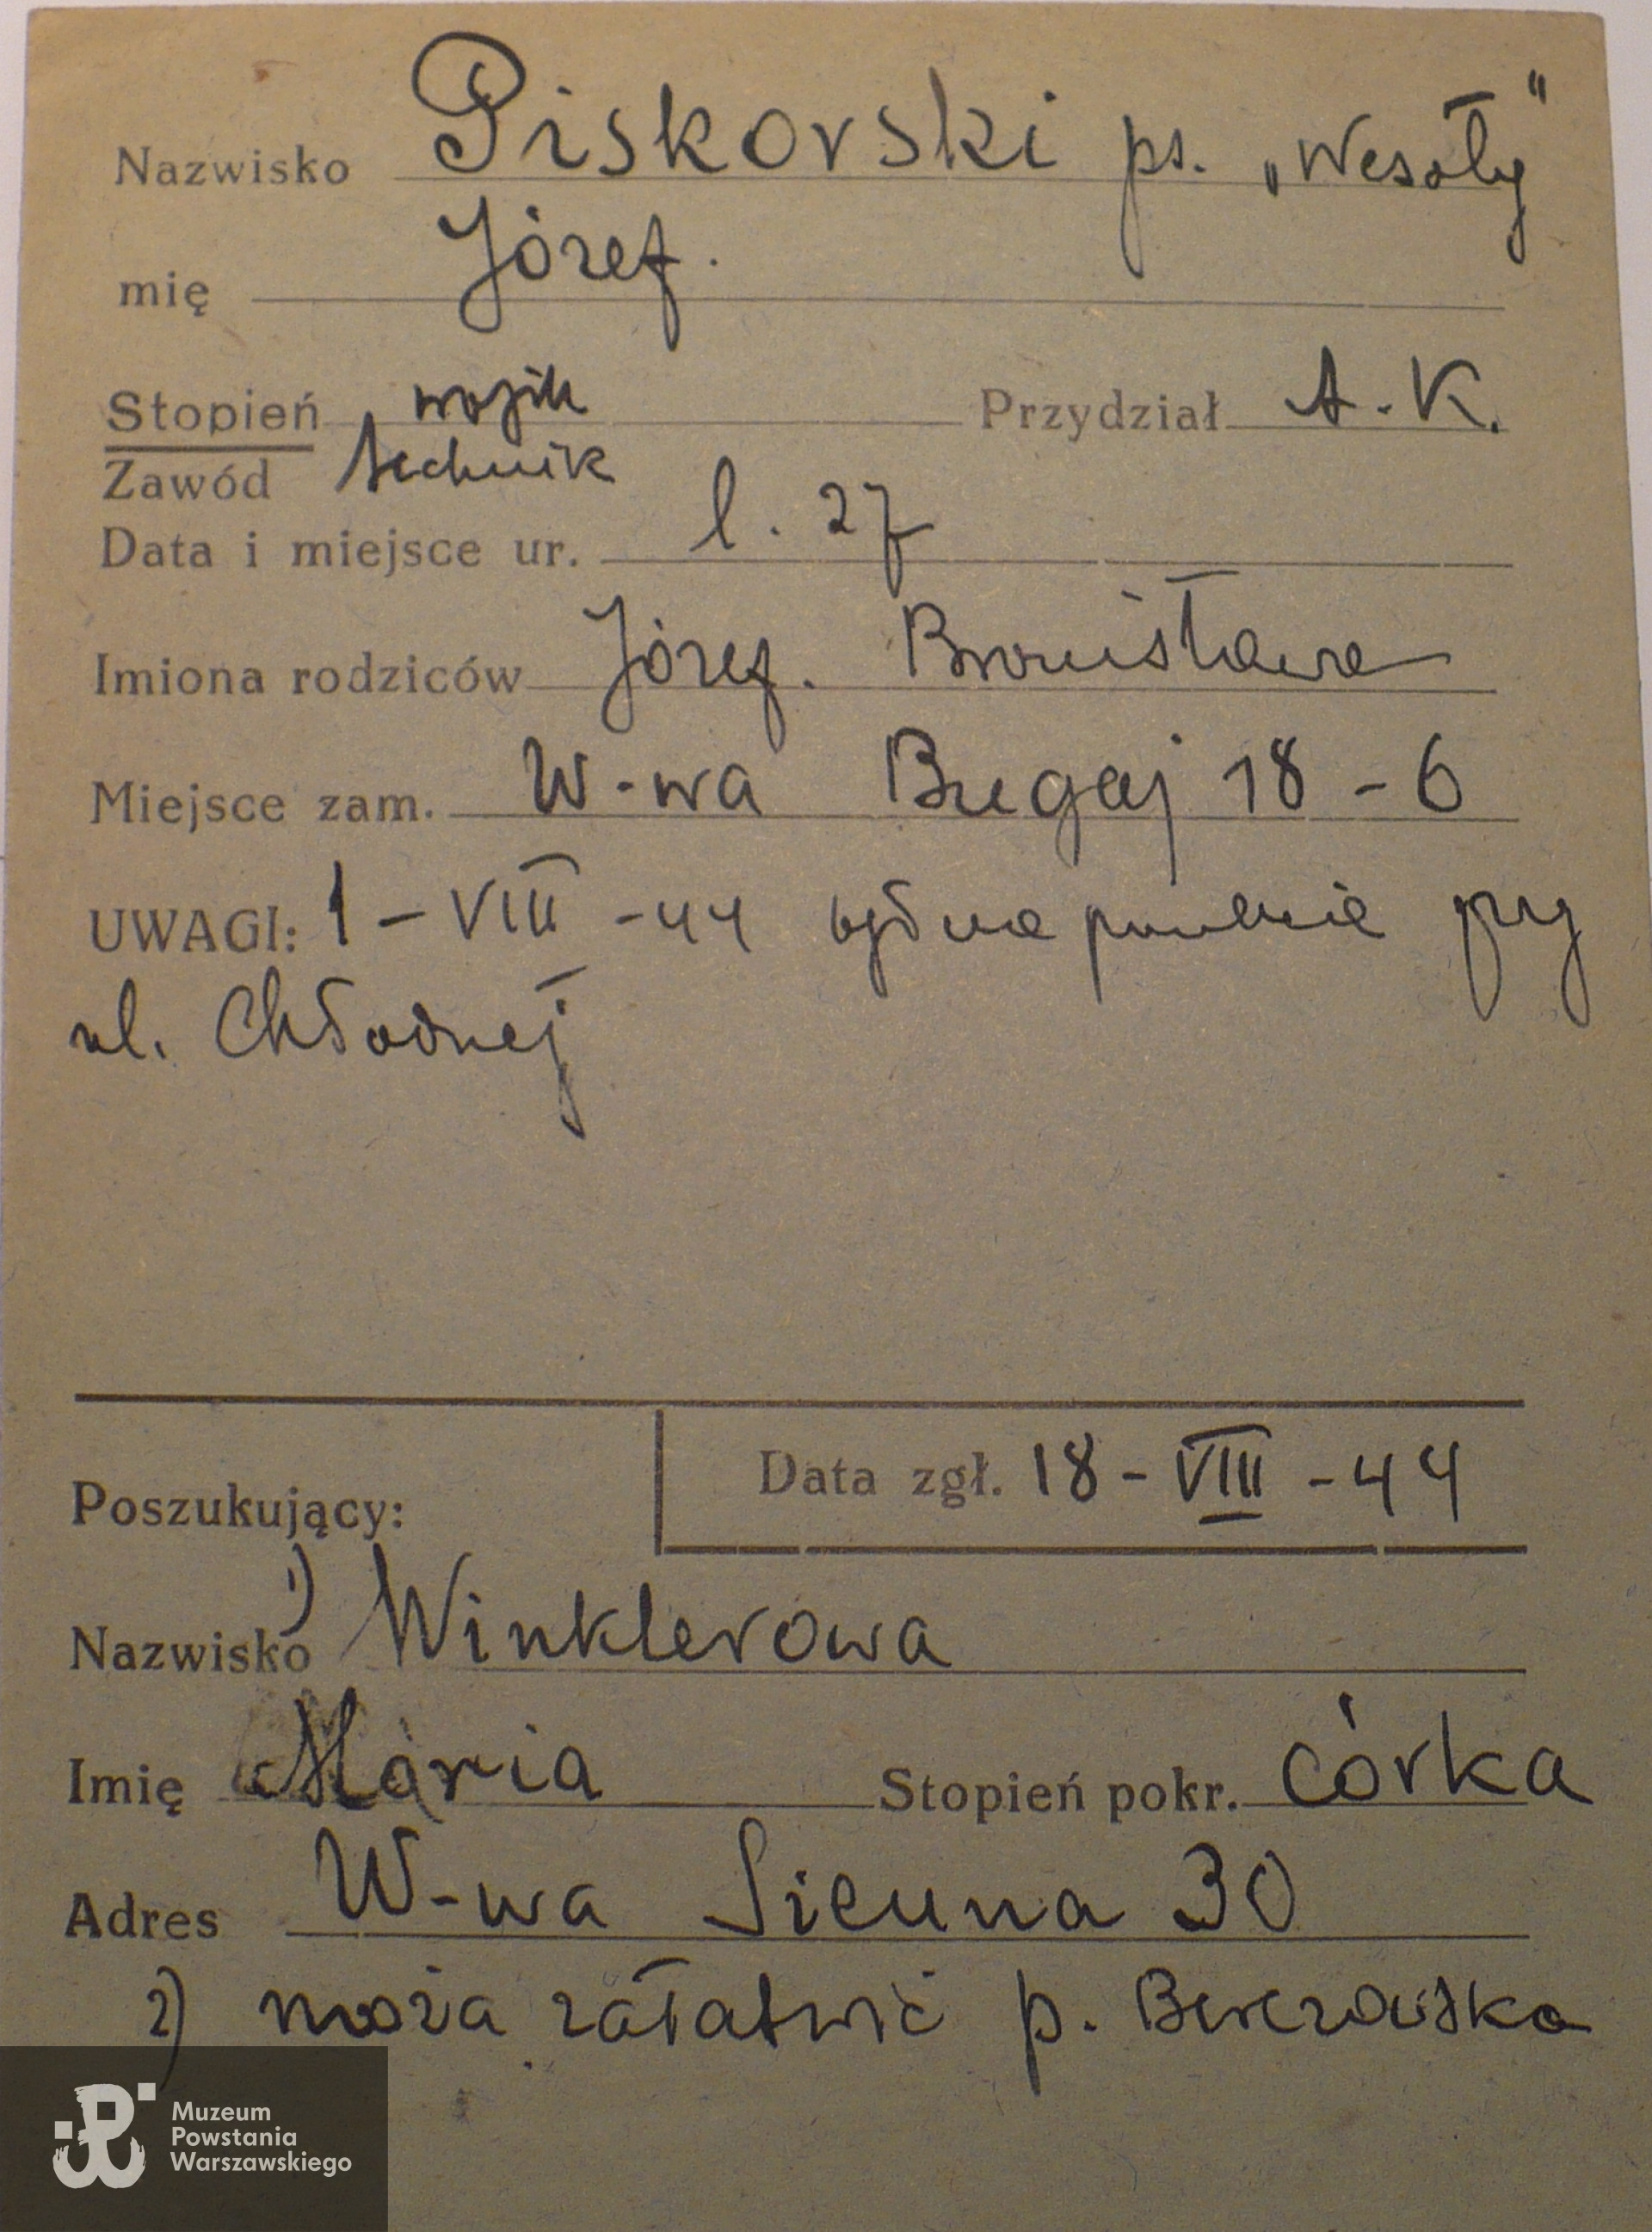 Nazwisko Piskorski ps. „Wesoły"
mię Józef.
Stopień Przydział A.K.
Zawód technik
Data i miejsce ur. l. 27
Imiona rodziców Józef. Bronisława
Miejsce zam. W-wa Bugaj 18 - 6
UWAGI: 1 - VIII - 44 był na punkcie przy
ul. Chłodnej
Data zgł. 18 - VIII - 44
Poszukujący:
1)
Nazwisko Winklerowa
Imię Maria Stopień pokr. córka
Adres W-wa Sienna 30
2) może załatwić p.
Muzeum
Powstania
Warszawskiego